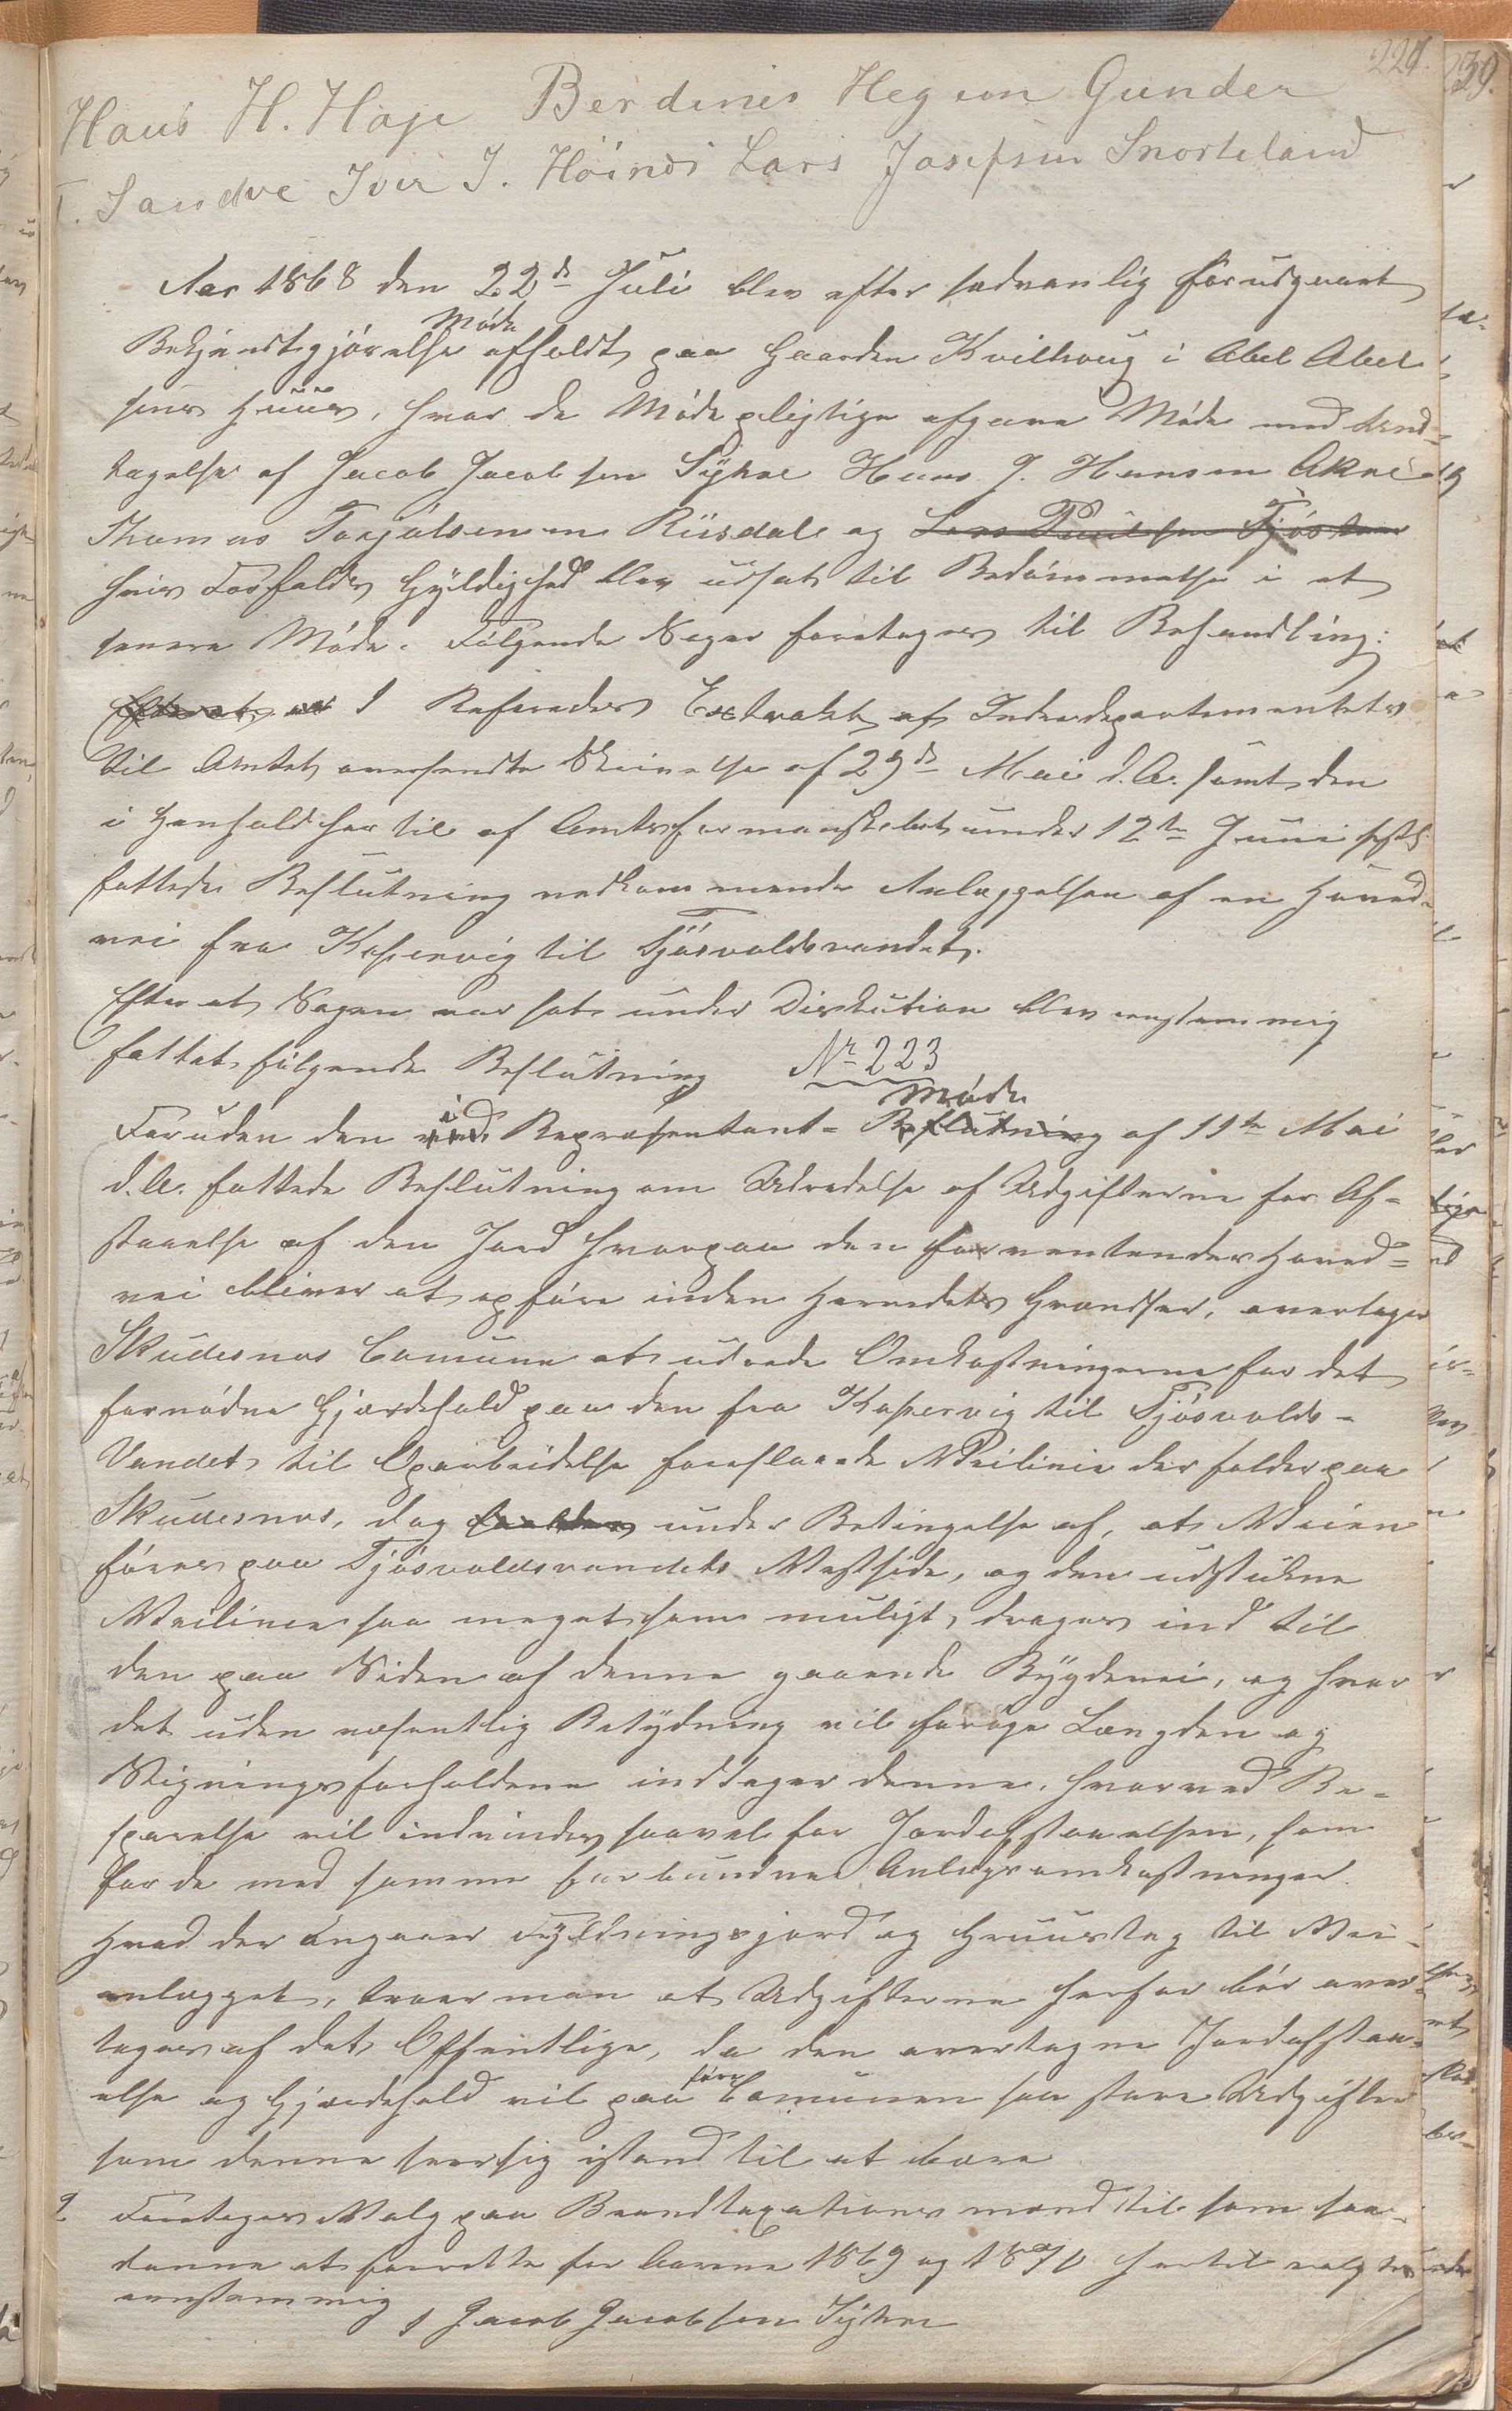 221.
239.
Hans H. Hope Berdines Hegeson Gunder
T. Sandve Iver J. Höines Lars Josefsen Snorteland
Aar 1868 den 22de Juli blev efter sædvanlig forudgaaet
Møde
Bekjendtgjørelse afholdt paa Gaarden Kvilhoug i Abel Abel
sens Huus, hvor de Mødepligtige afgave Møde med Und-
tagelse af Jacob Jacobsen Syhre Hans J. Hansen Akre
Thomas Torjulsen Riisdale og Lars Paulsen Tjøstem
hvis Forfalds Gyldighed blev udsat til Bedømmelse i et
senere Møde. Følgende Sager foretages til Behandling:
Efter at 1 Refereredes Extrakt af Inderdepartementets
til Amtet oversendte Skrivelse af 29de Mai d.A. samt den
i Henhold hertil af Amtsformandskabet under 12te Juni sidstl.
fattede Beslutning vedkommende Anlæggelsen af en Hoved-
vei fra Kopervig til Tjøsvoldsvandet.
Efter at Sagen var sat under Diskution blev eenstemmig
fattet følgende Beslutning No 223
i Møde
Foruden den ved Repræsentant- Beslutning af 11te Mai
d.A. fattede Beslutning om Udredelse af Udgifterne for Af-
staaelse af den Jord hvorpaa den forventendes Hoved-
vei bliver at opføre inden Herredets Grændser, overtager
Skudesnes Comune at udrede Omkostningerne for det
fornødne Gjærdehold paa den fra Kopervig til Tjøsvolds-
Vandet til Oparbeidelse foreslaaede Veilinie der falder paa
Skudesnes, dog under Betingelse af, at Veien
føres paa Tjøsvoldsvandets Vestside, og den udstukne
Veilinie saa meget som muligt, drages ind til
den paa Siden af denne gaaende Bygdevei, og hvor
det uden væsentlig Betydning vil forøge Længden og
Stigningsforholdene indtager denne, hvorved Be-
sparelse vil indvindes saavel for Jordafstaaelsen, som
for de med samme forbundne Anlægsomkostninger.
Hvad der angaaer Fyldningsjord og Gruustag til Vei-
anlægget, troer man at Udgifterne herfor bør over-
tages af det Offentlige, da den overtagne Jordafstaa-
føre
else og Gjærdehold vil paa Comunen saa store Udgifter
som denne seer sig istand til at bære
2 Foretages Valg paa Brandtaxationsmænd til som saa-
danne at forrette for Aarene 1869 og 1870 hertil valgtes
eenstemmig
1 Jacob Jacobsen Syhre